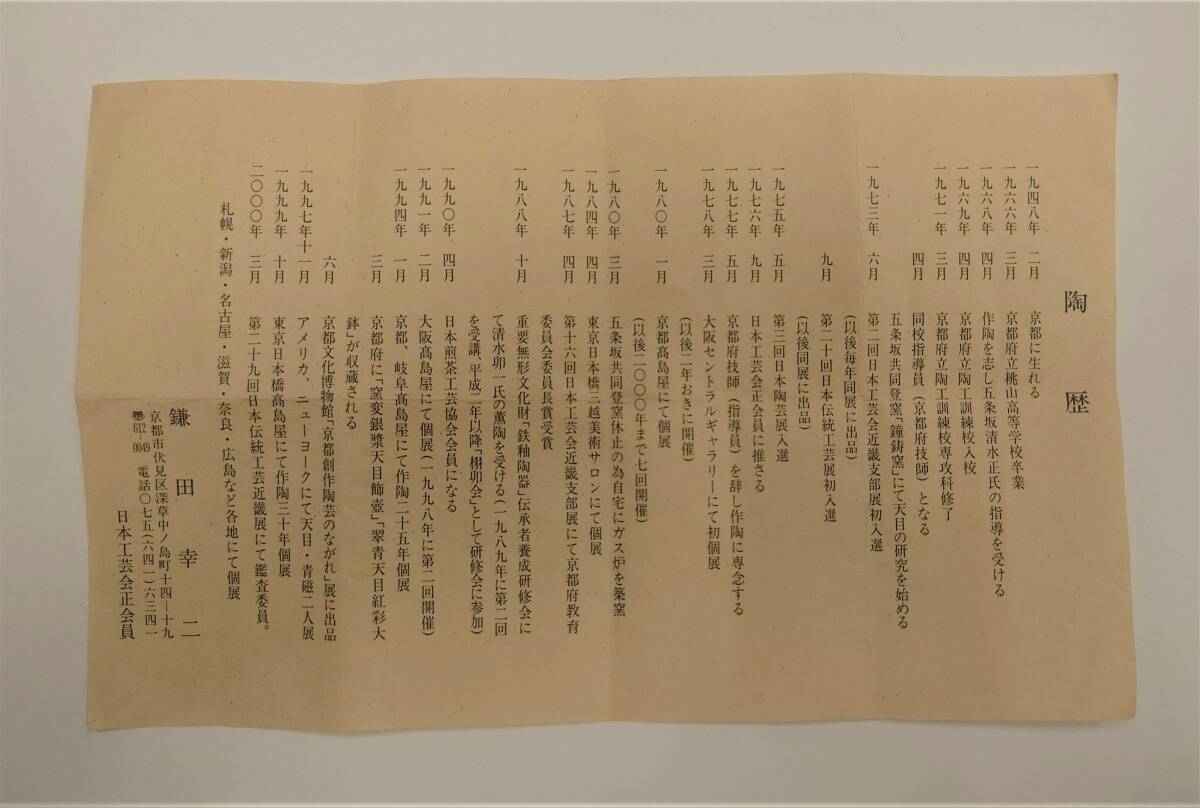 陶歴
一九四八年 二月 京都に生れる
一九六六年 三月 京都府立桃山高等学校卒業
一九六八年 四月 作陶を志し五条坂清水正氏の指導を受ける
一九六九年 四月 京都府立陶工訓練校入校
一九七一年 三月 京都府立陶工訓練校専攻科修了
四月 同校指導員(京都府技師)となる
五条坂共同登窯「鐘鋳窯」にて天目の研究を始める
一九七三年 六月 第二回日本工芸会近畿支部展初入選
(以後毎年同展に出品)
九月 第二十回日本伝統工芸展初入選
(以後同展に出品)
一九七五年 五月 第三回日本陶芸展入選
一九七六年 九月 日本工芸会正会員に推さる
一九七七年 五月 京都府技師(指導員)を辞し作陶に専念する
一九七八年 三月 大阪セントラルギャラリーにて初個展
(以後二年おきに開催)
一九八〇年 一月 京都髙島屋にて個展
(以後二〇〇〇年まで七回開催)
一九八〇年 三月 五条坂共同登窯休止の為自宅にガス炉を築窯
一九八四年 四月 東京日本橋三越美術サロンにて個展
一九八七年 四月 第十六回日本工芸会近畿支部展にて京都府教育
委員会委員長賞受賞
一九八八年 十月 重要無形文化財「鉄釉陶器」伝承者養成研修会に
て清水卯一氏の薫陶を受ける(一九八九年に第二回
を受講、平成二年以降「栩卯会」として研修会に参加)
一九九〇年 四月 日本煎茶工芸協会会員になる
一九九一年 二月 大阪髙島屋にて個展(一九九八年に第二回開催)
一九九四年 一月 京都、岐阜髙島屋にて作陶二十五年個展
三月 京都府に「窯変銀漿天目飾壺」「翠青天目紅彩大
鉢」が収蔵される
六月 京都文化博物館「京都創作陶芸のながれ」展に出品
一九九七年十一月 アメリカ、ニューヨークにて天目・青磁二人展
一九九九年 十月 東京日本橋髙島屋にて作陶三十年個展
二〇〇〇年 三月 第二十九回日本伝統工芸近畿展にて鑑査委員。
札幌・新潟・名古屋・滋賀・奈良・広島など各地にて個展
鎌田幸二
京都市伏見区深草中ノ島町十四―十九
〠612 0049 電話〇七五(六四一)六三四一
日本工芸会正会員